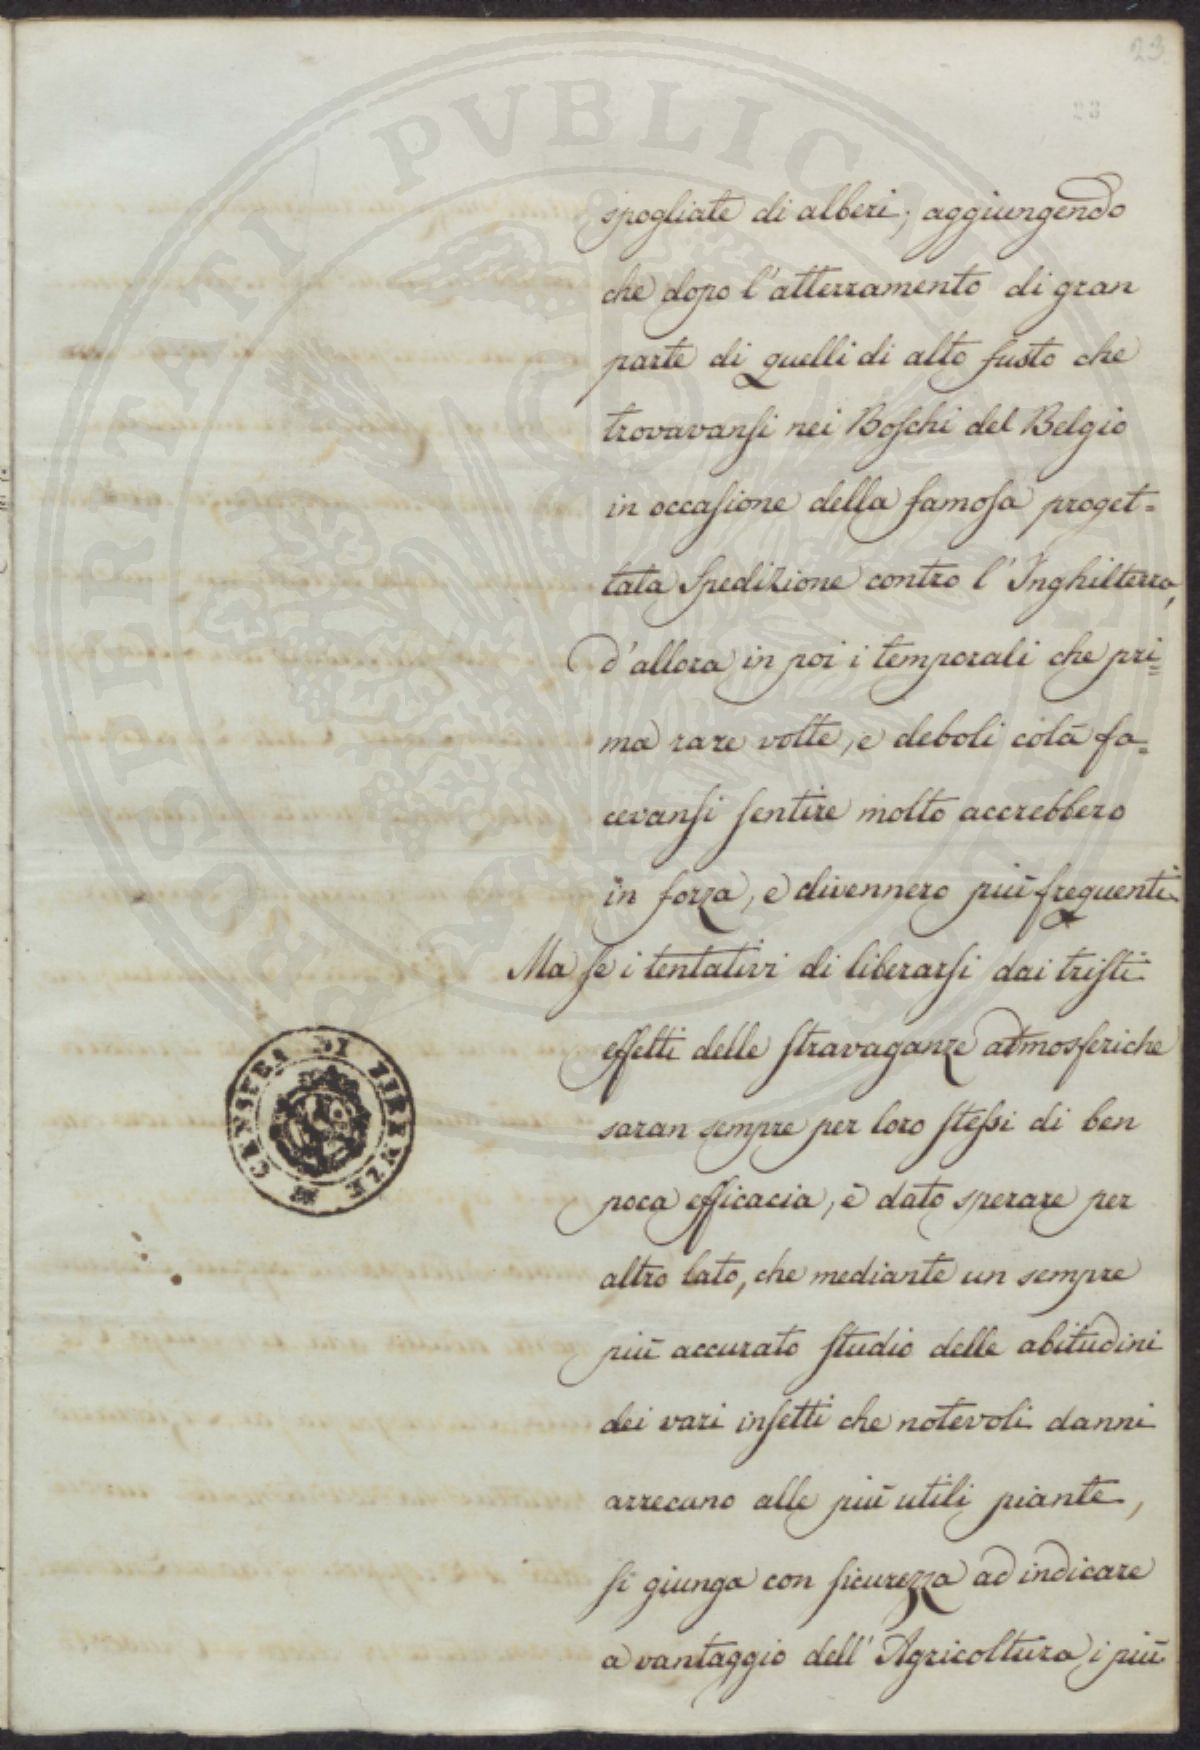 23
23
PROSPERITATI PVBLICAE
spogliate di alberi; aggiungendo
che dopo l'atterramento di gran
parte di quelli di alto fusto che
trovavansi nei Boschi del Belgio
in occasione della famosa proget=
tata Spedizione contro l'Inghilterra,
d'allora in poi i temporali che pri=
ma rare volte, e deboli colà fa=
cevansi sentire molto accrebbero
in forza, e divennero più frequenti
Ma se i tentativi di liberarsi dai tristi
effetti delle stravaganze atmosferiche
saran sempre per loro stessi di ben
poca efficacia, è dato sperare per
altro lato, che mediante un sempre
più accurato studio delle abitudini
dei vari insetti che notevoli danni
arrecano alle più utili piante,
si giunga con sicurezza ad indicare
a vantaggio dell'Agricoltura i più
DI FIRENZE